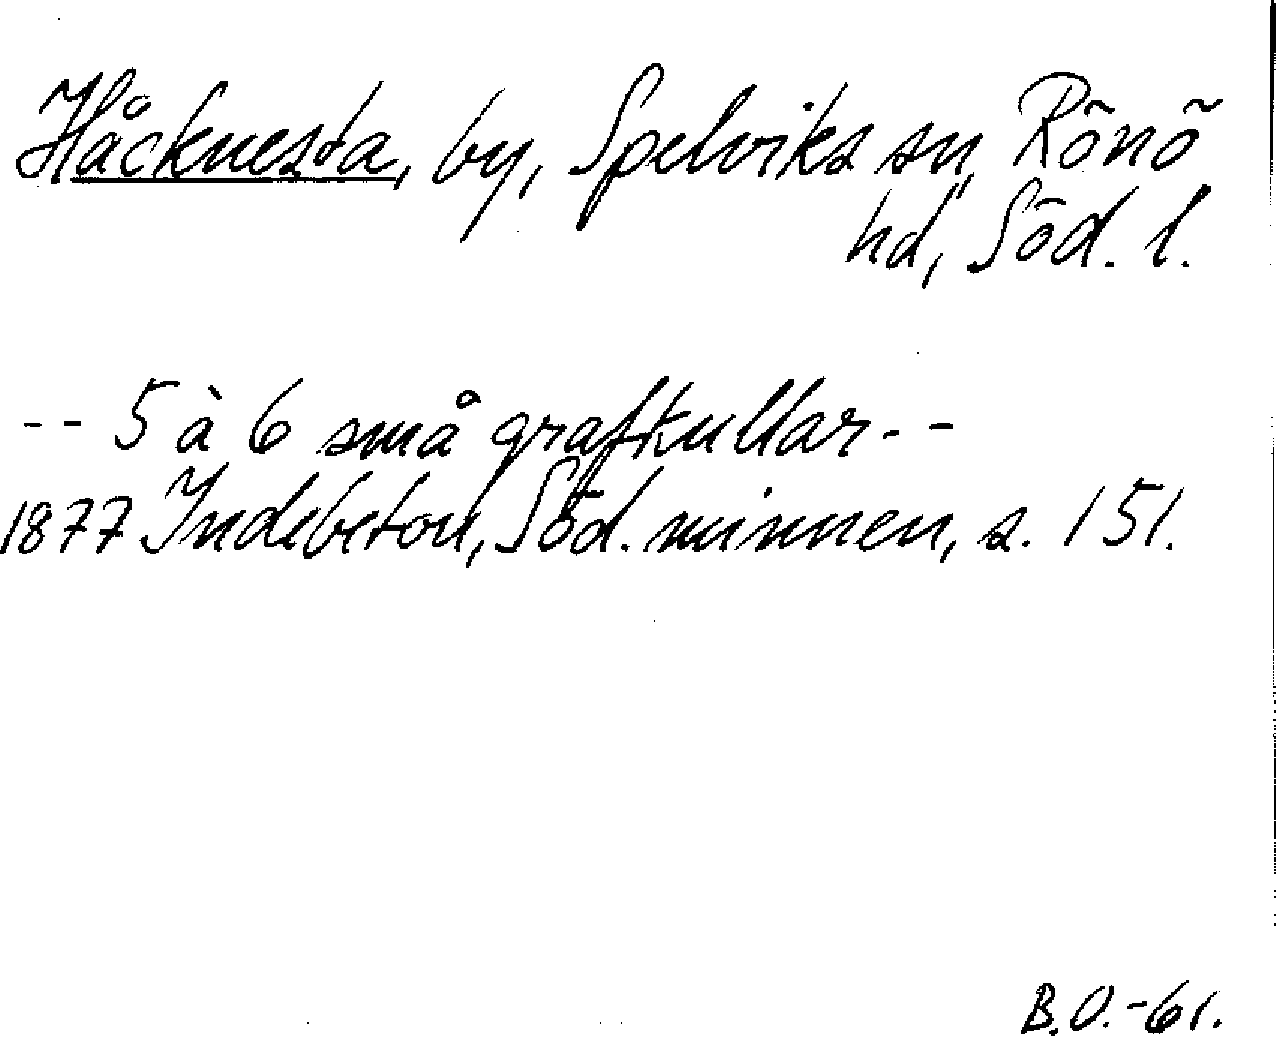 Håcknesta, by, Spelviks sn, Rönö
hd, Söd. l.
-- 5 à 6 små grafkullar --
1877 Indebetou, Söd. minnen, s. 151.
B.O.-61.